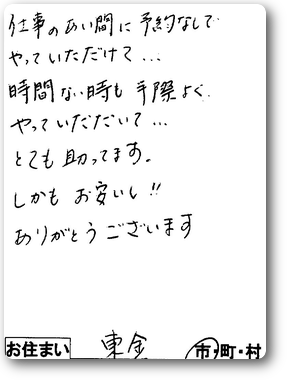 仕事のあい間に予約なしで
やっていただけて...
時間ない時も手際よく
やっていただいて...
とても助ってます。
しかもお安いし!!
ありがとうございます
お住まい 東金 市・町・村